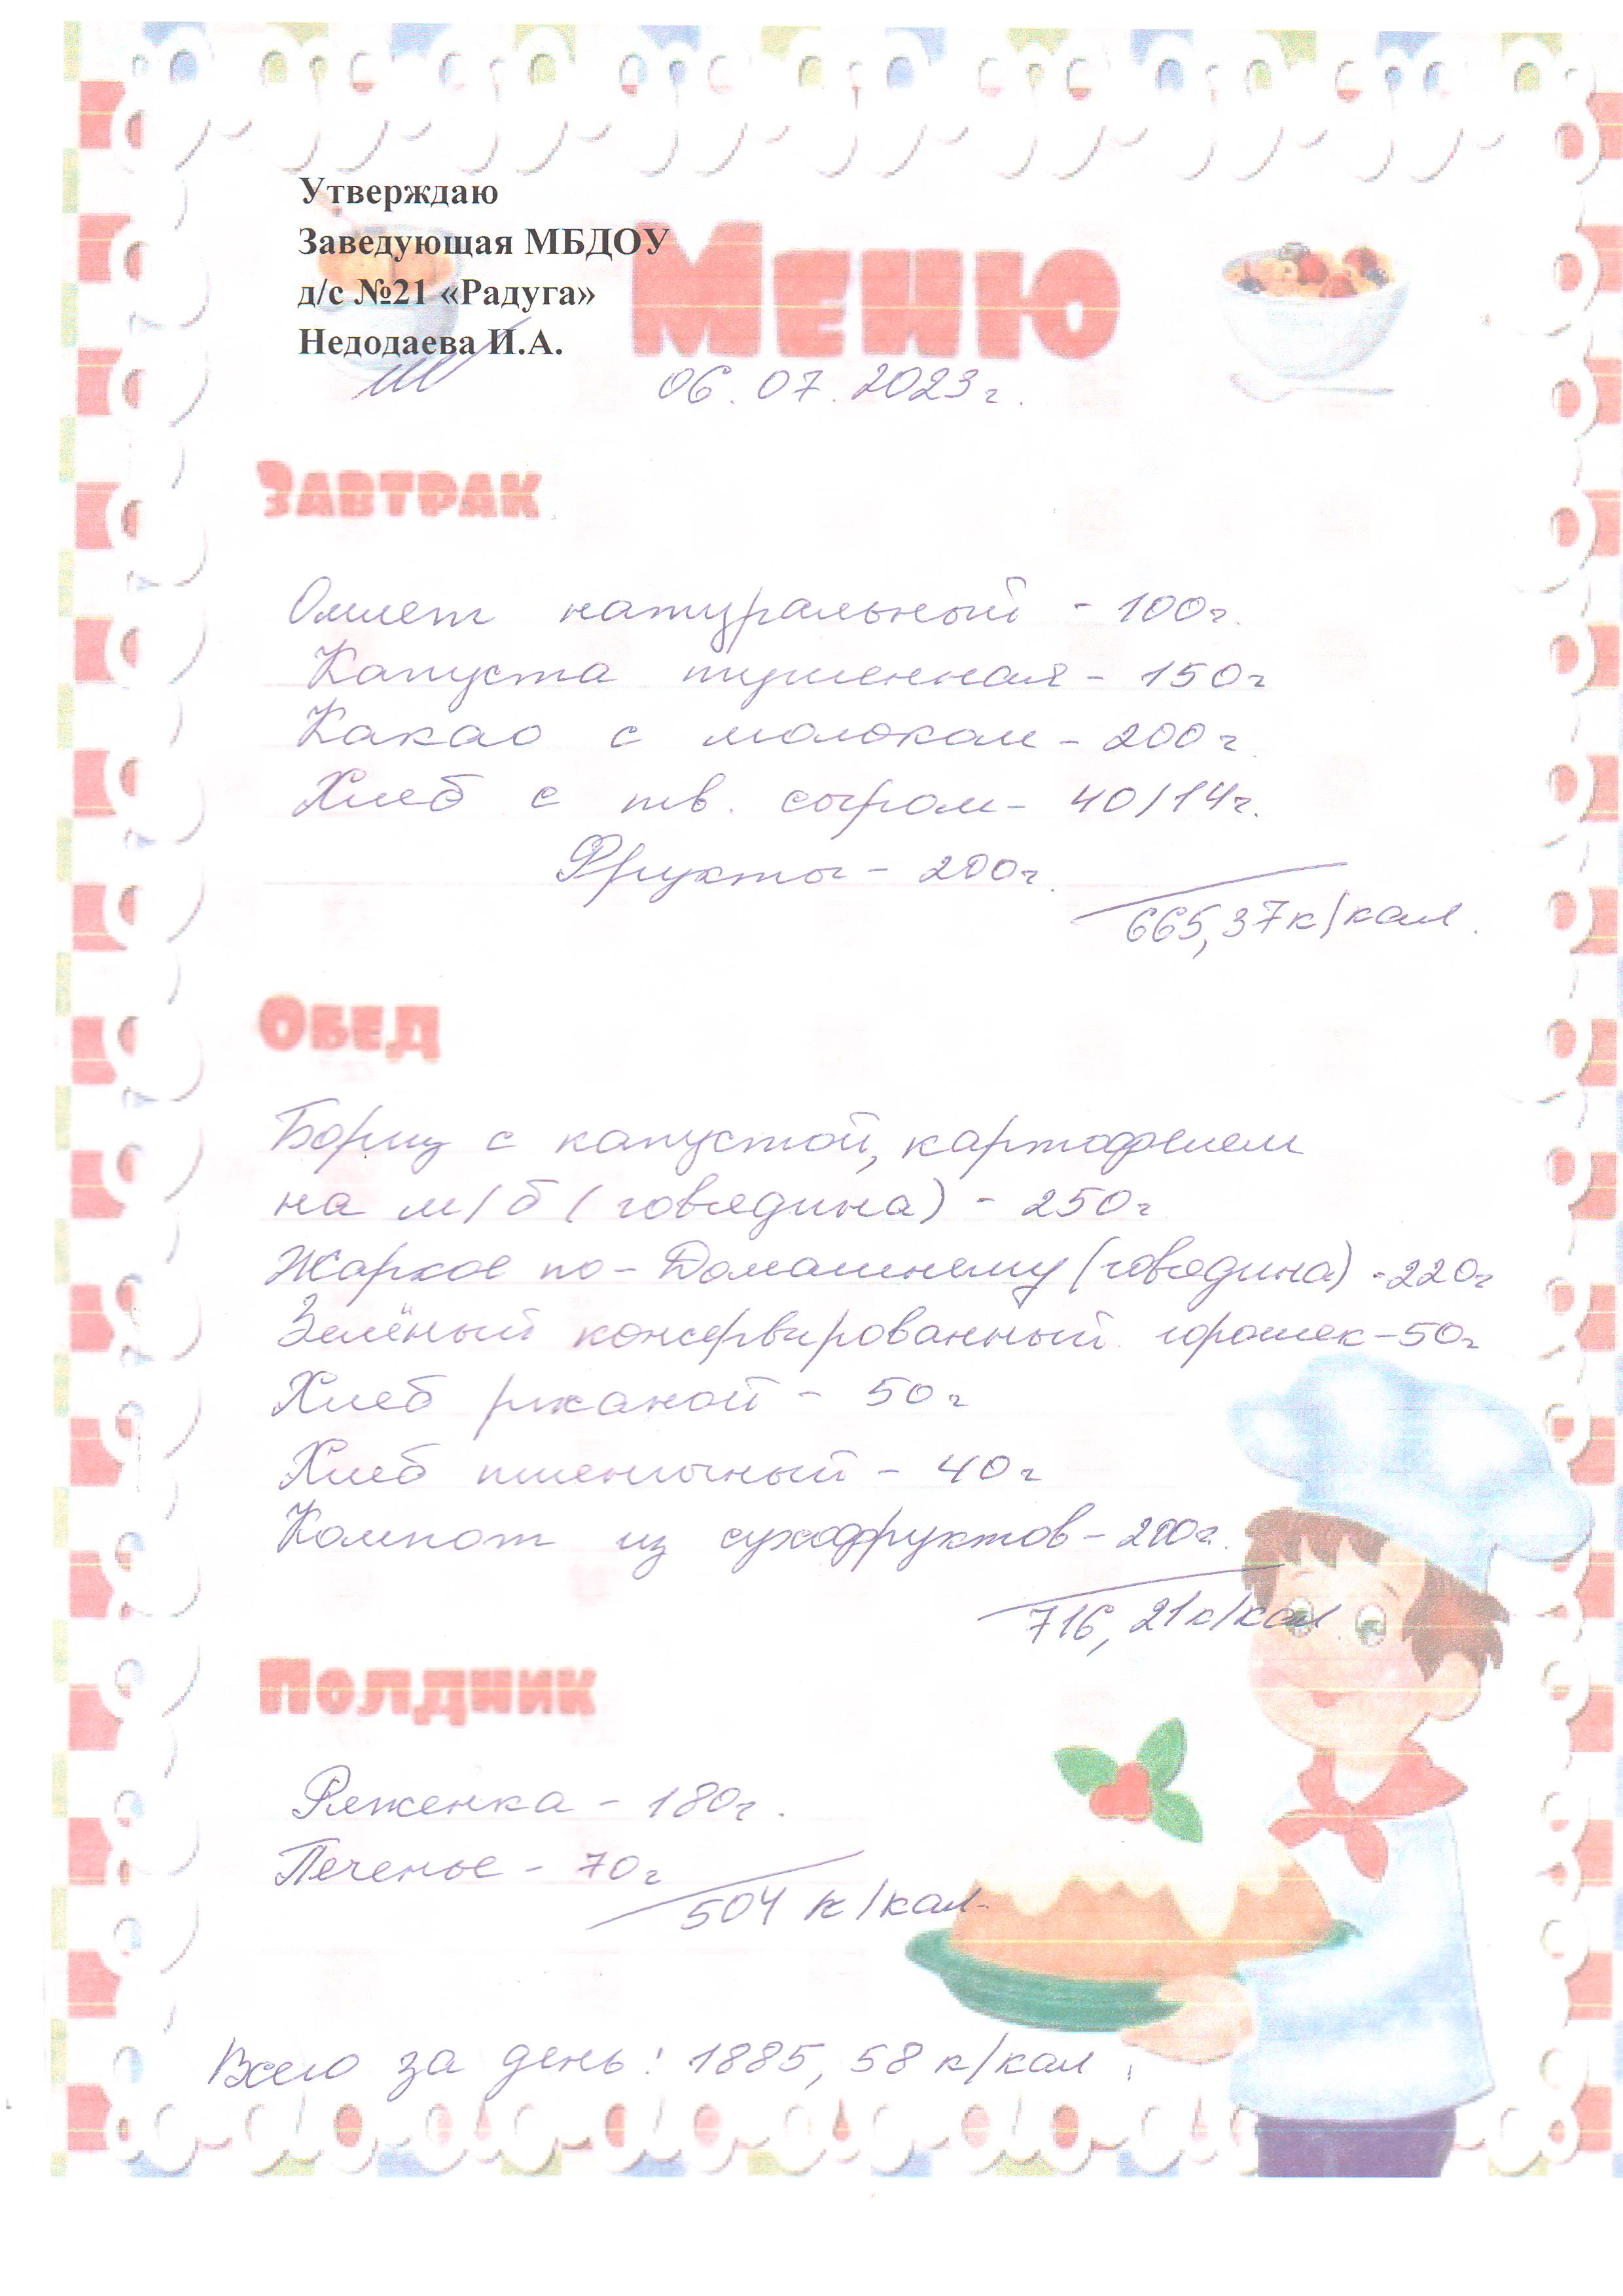 Утверждаю
Заведующая МБДОУ
д/с №21 «Радуга»
Недодаева И.А.
Меню
06.07.2023г.
Завтрак
Омлет натуральный - 100г.
Капуста тушенная - 150г
Какао с молоком - 200г.
Хлеб с тв. сыром - 40/14г.
Фрукты - 200г.
665,37к/кал.
Обед
Борщ с капустой, картофелем
на м/б (говядина) - 250г
Жаркое по-Домашнему (говядина) - 220г
Зелёный консервированный горошек - 50г
Хлеб ржаной - 50г
Хлеб пшеничный - 40г
Компот из сухофруктов - 200г.
716,21к/кал.
Полдник
Ряженка - 180г.
Печенье - 70г
504 к/кал.
Всего за день: 1885,58 к/кал.